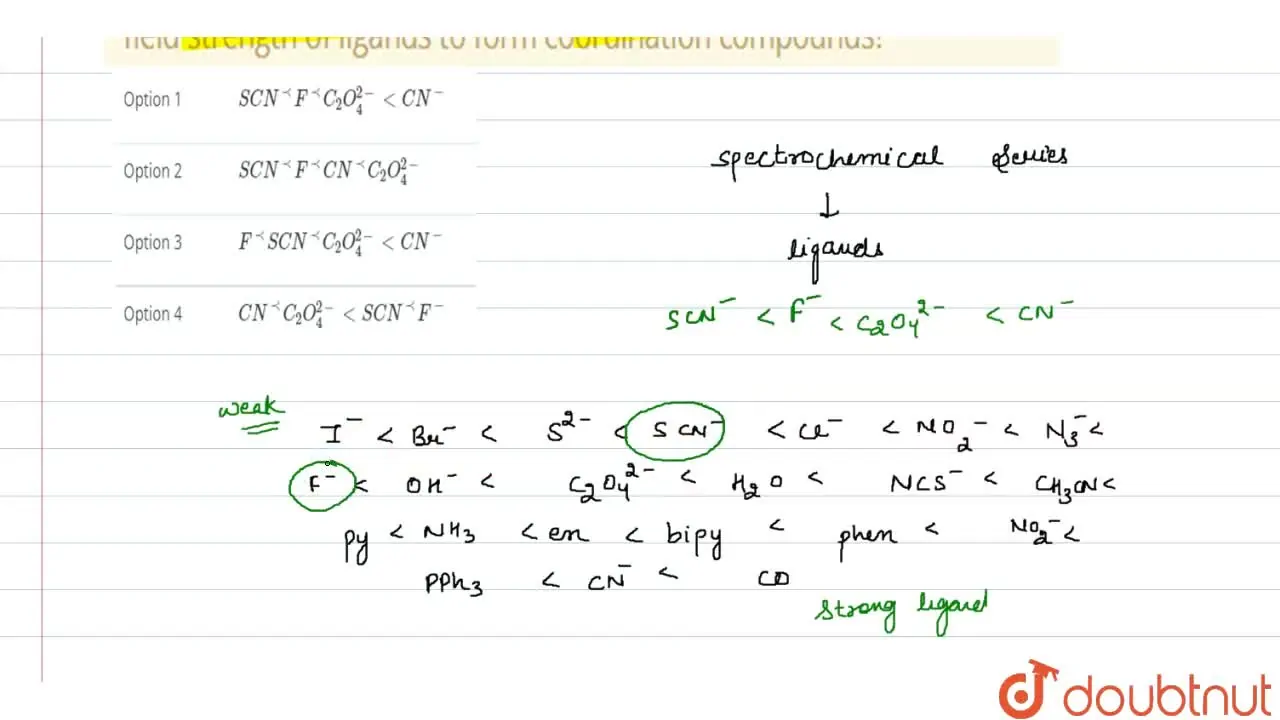 field strength of ligands to form coordination compounds?
Option 1 SCN^≺ F^≺ C₂O₄²⁻ < CN⁻
Option 2 SCN^≺ F^≺ CN^≺ C₂O₄²⁻
Option 3 F^≺ SCN^≺ C₂O₄²⁻ < CN⁻
Option 4 CN^≺ C₂O₄²⁻ < SCN^≺ F⁻
Spectrochemical Series
↓
ligands
SCN⁻ < F⁻ < C₂O₄²⁻ < CN⁻
weak
I⁻ < Br⁻ < S²⁻ < SCN⁻ < Cl⁻ < NO₂⁻ < N₃⁻ <
F⁻ < OH⁻ < C₂O₄²⁻ < H₂O < NCS⁻ < CH₃CN <
py < NH₃ < en < bipy < phen < NO₂⁻ <
PPh₃ < CN⁻ < CO
Strong ligand
doubtnut